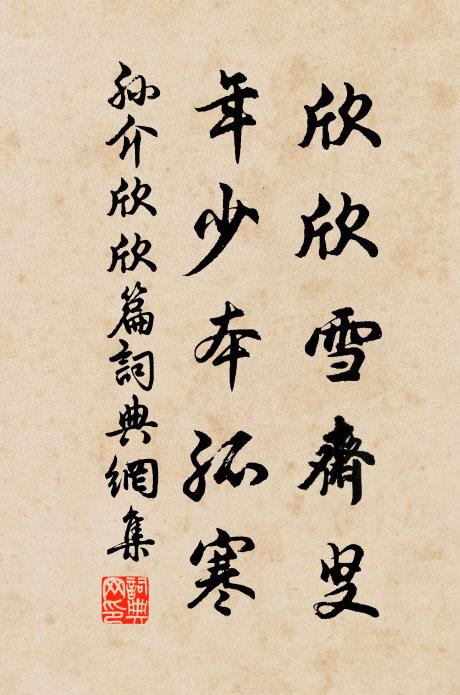 欣欣雪齋叟
年少本孤寒
孫介欣欣篇詞典網集
詞典網印